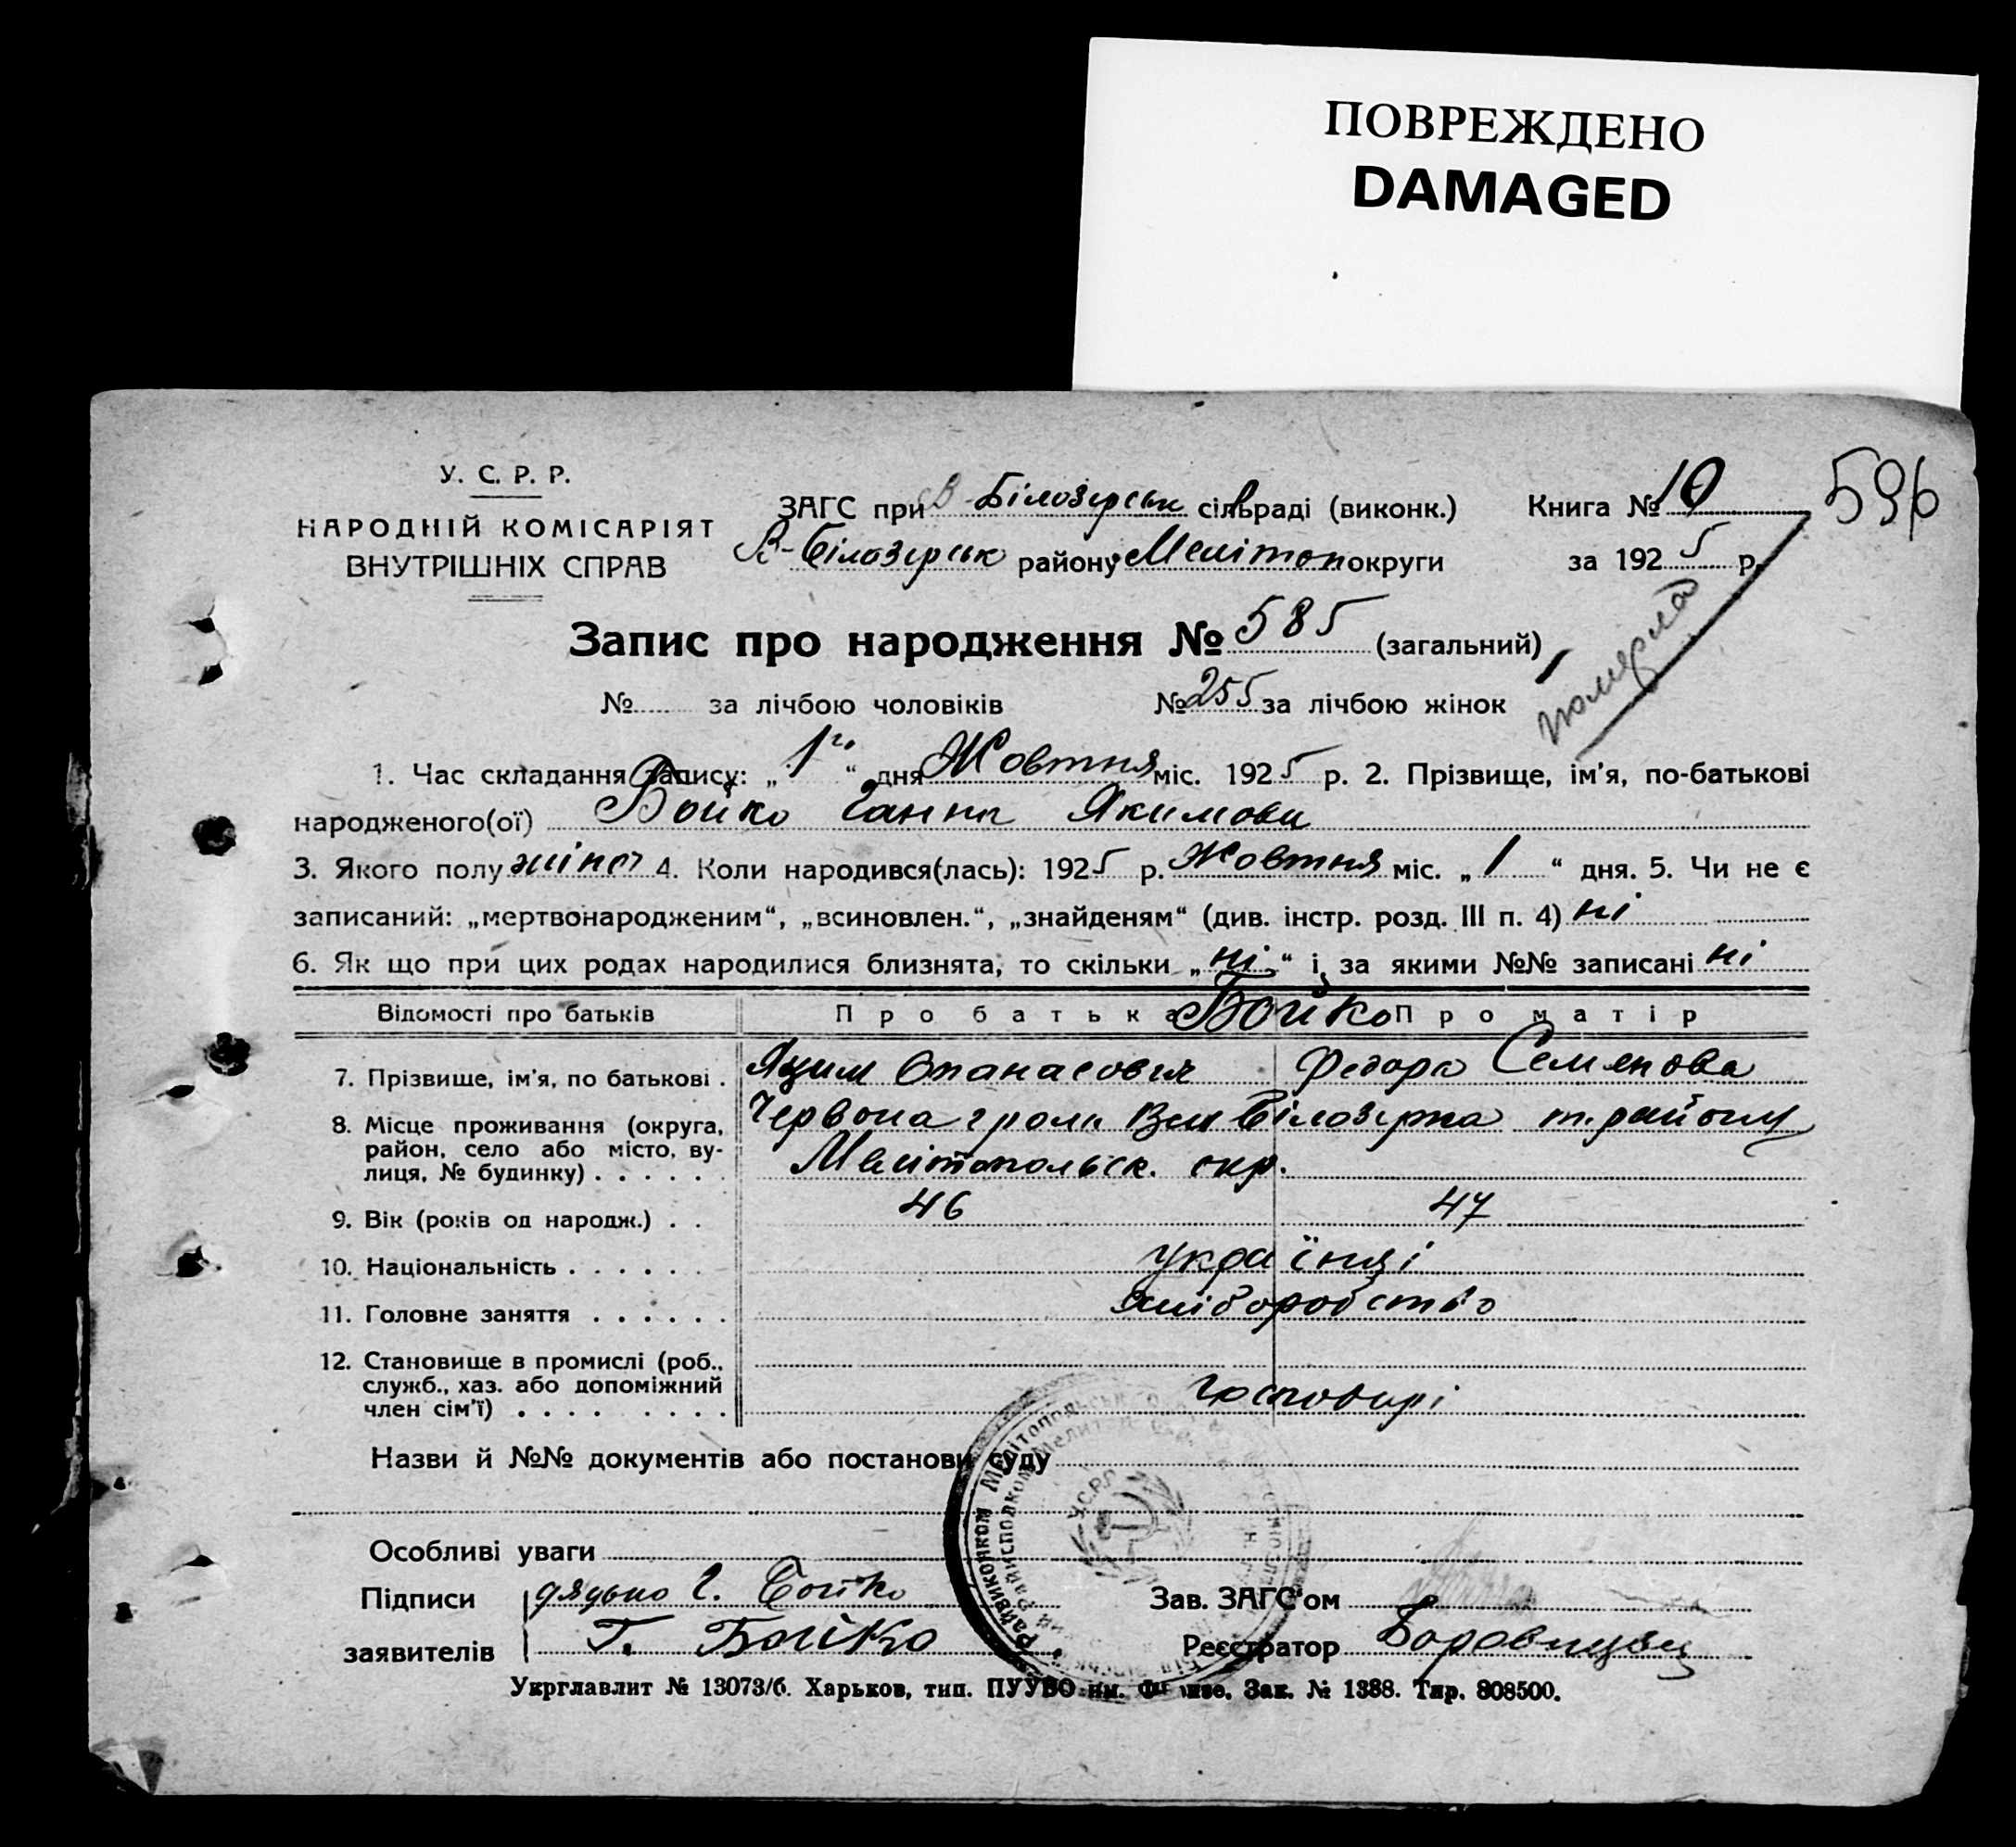 ПОВРЕЖДЕНО
DAMAGED
У. С. Р. Р.
НАРОДНІЙ КОМІСАРІЯТ
ВНУТРІШНІХ СПРАВ
ЗАГС при В-Білозерськ сільраді (виконк.)
В-Білозерськ району Мелітоп округи
Книга № 10
за 1925 р.
596
померла
Запис про народження № 585 (загальний)
№ за лічбою чоловіків № 255 за лічбою жінок
1. Час складання запису: „ 1го “ дня Жовтня міс. 1925 р. 2. Прізвище, ім'я, по-батькові
народженого(ої) Бойко Ганна Якимова
3. Якого полу жіноч 4. Коли народився(лась): 1925 р. Жовтня міс. „ 1 “ дня. 5. Чи не є
записаний: „мертвонародженим“, „всиновлен.“, „знайденям“ (див. інстр. розд. III п. 4) ні
6. Як що при цих родах народилися близнята, то скільки „ ні “ і за якими №№ записані ні
Відомості про батьків Про батька Бойко Про матір
7. Прізвище, ім'я, по батькові . Опанасович Федора Семенова
8. Місце проживання (округа, Червона Вел Білозерка т. району
район, село або місто, ву- Мелітопольск. окр.
лиця, № будинку) . . . . . .
9. Вік (років од народж.) . . 46 47
10. Національність . . . . . . українці
11. Головне заняття . . . . . . хліборобство
12. Становище в промислі (роб.,
служб., хаз. або допоміжний
член сім'ї) . . . . . . . . господарі
Назви й №№ документів або постанови суду
Особливі уваги
Підписи дядько Г. Бойко Зав. ЗАГС'ом
заявителів Г. Бойко Реєстратор
Укрглавлит № 13073/б. Харьков, тип. ПУУВО им. Фрунзе. Зак. № 1388. Тир. 808500.
У.С.Р.Р.
Райвиконком Мелітопольської